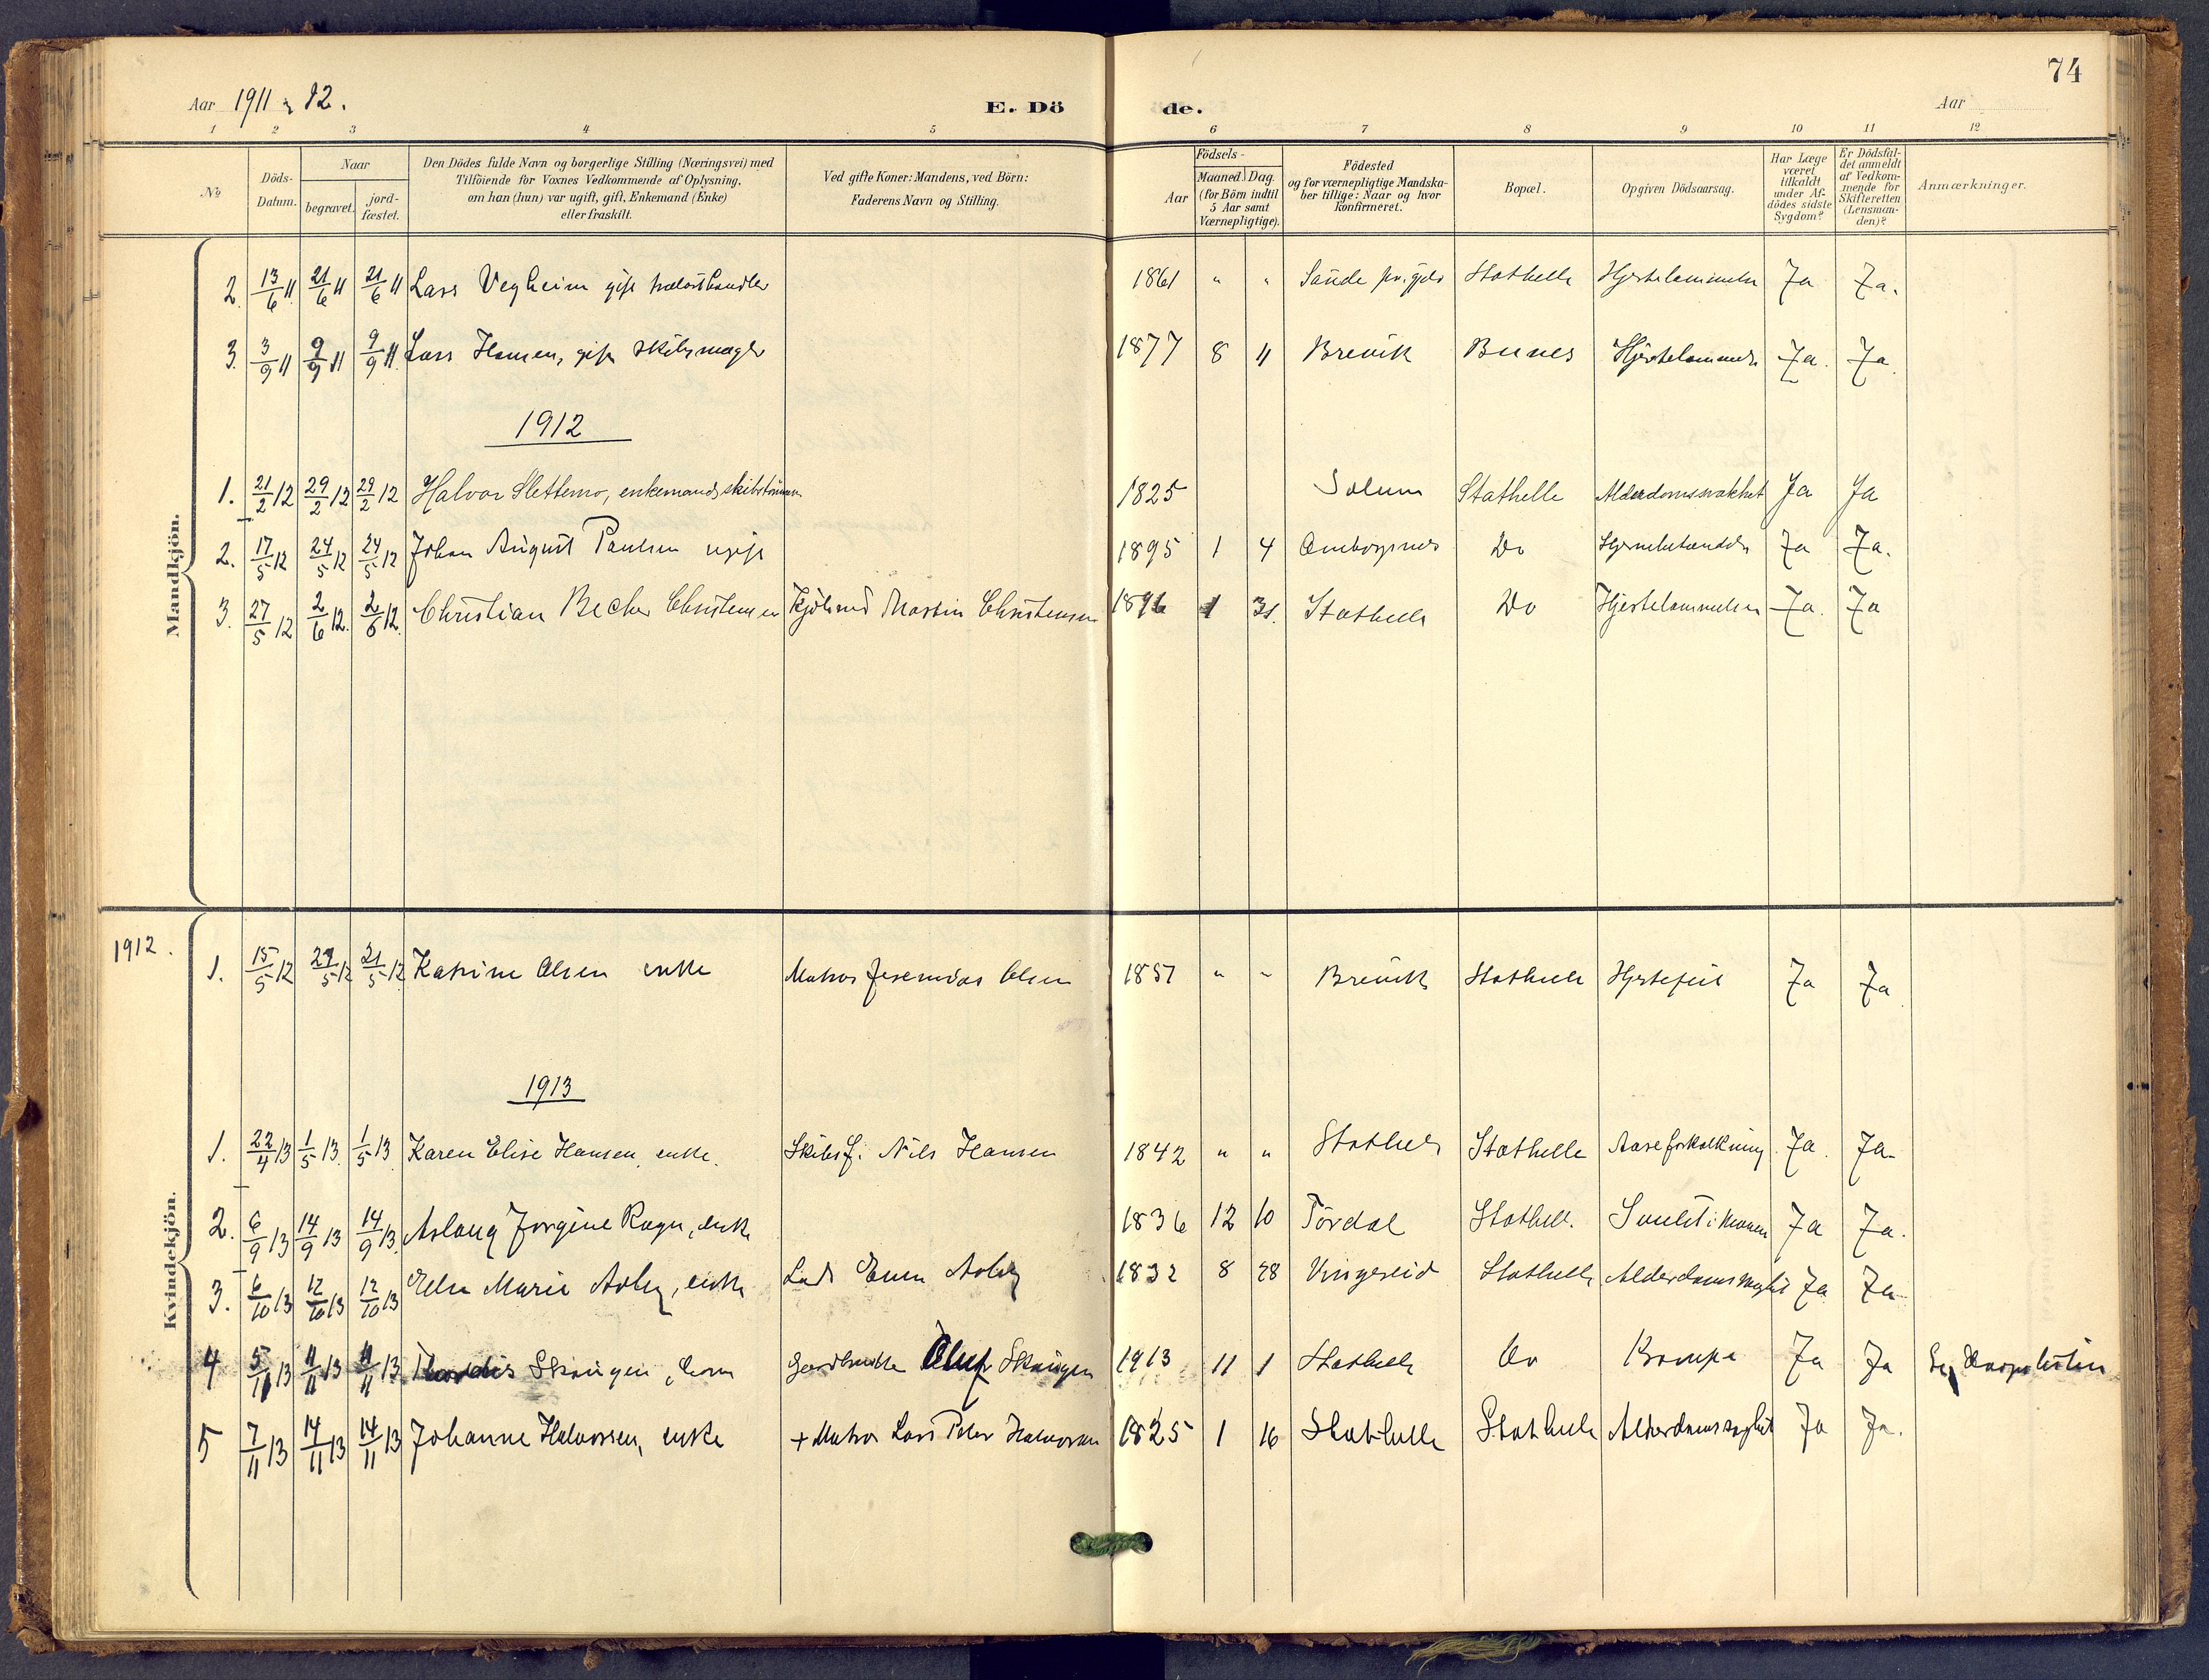 74
Aar 1911 & 12. E. Dö de. Aar
1 2 3 4 5 6 7 8 9 10 11 12
No
Döds-Datum.
Naar
begravet.
jordfæstet.
Den Dödes fulde Navn og borgerlige Stilling (Næringsvei) med
Tilföiende for Voxnes Vedkommende af Oplysning,
om han (hun) var ugift, gift, Enkemand (Enke)
eller fraskilt.
Ved gifte Koner: Mandens, ved Börn:
Faderens Navn og Stilling.
Födsels-
Aar
Maaned. Dag.
(for Börn indtil
5 Aar samt
Værnepligtige).
Födested
og for værnepligtige Mandska-
ber tillige: Naar og hvor
konfirmeret.
Bopæl.
Opgiven Dödsaarsag.
Har Læge
været
tilkaldt
under Af-
dödes sidste
Sygdom?
Er Dödsfal-
det anmeldt
af Vedkom-
mende for
Skifteretten
(Lensman-
den)?
Anmærkninger.
Mandkjön.
2. 13/6 11 21/6 11 21/6 11 Lars Vegheim gift trælasthandler 1861 " " Sande Stathelle Hjertelammelse Ja Ja.
3. 3/9 11 9/9 11 9/9 11 Lars Hansen, gift skibsmægler 1877 8 11 Brevik Bunes Hjertelammelse Ja. Ja.
1912
1. 21/2 12 29/2 12 29/2 12 Halvor Slettemo, enkemand, skibstømmerm 1825 Solum Stathelle Alderdomssvakhet Ja Ja
2. 17/5 12 24/5 12 24/5 12 Johan August Paulsen ugift 1895 1 4 Ombogsnes Do Hjernebetændelse Ja Ja.
3. 27/5 12 2/6 12. 2/6 12. Christian Becher Christensen Kjøbmd Martin Christensen 1896 1 31. Stathelle Do Hjertelammelsen Ja. Ja
Kvindekjön.
1912.
1. 15/5 12 21/5 12 21/5 12 Katrine Olsen enke Matros Jeremias Olsen 1851 " " Brevik Stathelle Hjertefeil Ja Ja
1913
1. 22/4 13 1/5 13. 1/5 13 Karen Elise Hansen enke. Skibsf. Nils Hansen 1842 " " Stathelle Stathelle Aareforkalkning Ja. Ja.
2. 6/9 13 14/9 13 14/9 13. Aslaug Jorgine Rogn, enke 1836 12 10 Tördal Stathell. Ja Ja.
3. 6/10 13 12/10 13 12/10 13 Ellen Marie Asby, enke Lods Even Asby 1832 8 28 Vingereid Stathelle Alderdomssvaghet Ja Ja
4 5/11 13 11/11 13 11/11 13. Thordis Skougen, barn Oluf Skougen 1913 11 1 Stathelle Do Krampe Ja Ja
5 7/11 13 14/11 13 14/11 13 Johanne Halvorsen, enke + Matros Lars Peter Halvorsen 1825 1 16 Stathelle Stathelle Alderdomssvaghet Ja Ja.